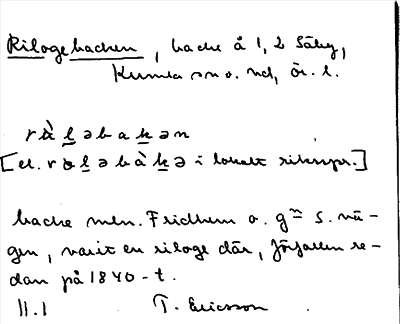 Rilogebacken, backe å 1, 2 Säby,
Kumla sn o. hd, Ör. l.
rì̀ləbakən
[el. rìləbàkə i lokalt riksspr.]
backe mln. Fridhem o. g~ s. vä-
gen, varit en riloge där, förfallen re-
dan på 1840-t.
II.1 T. Ericsson